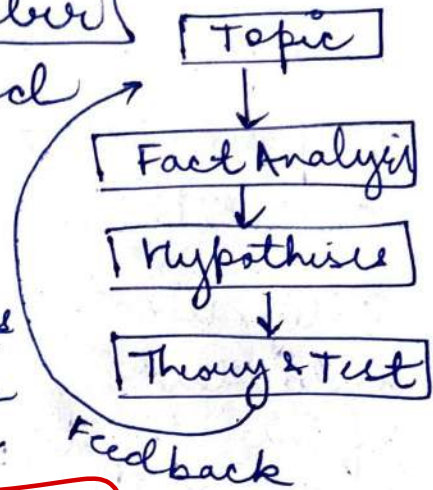 Topic
Fact Analysis
Hypothisis
Theory & Test
Feedback